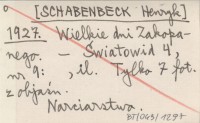 [SCHABENBECK Henryk]
1927. Wielkie dni Zakopa-
nego. – Światowid 4,
nr. 9: , il. Tylko 7 fot.
z objaśn.
Narciarstwa.
BT/043/1297